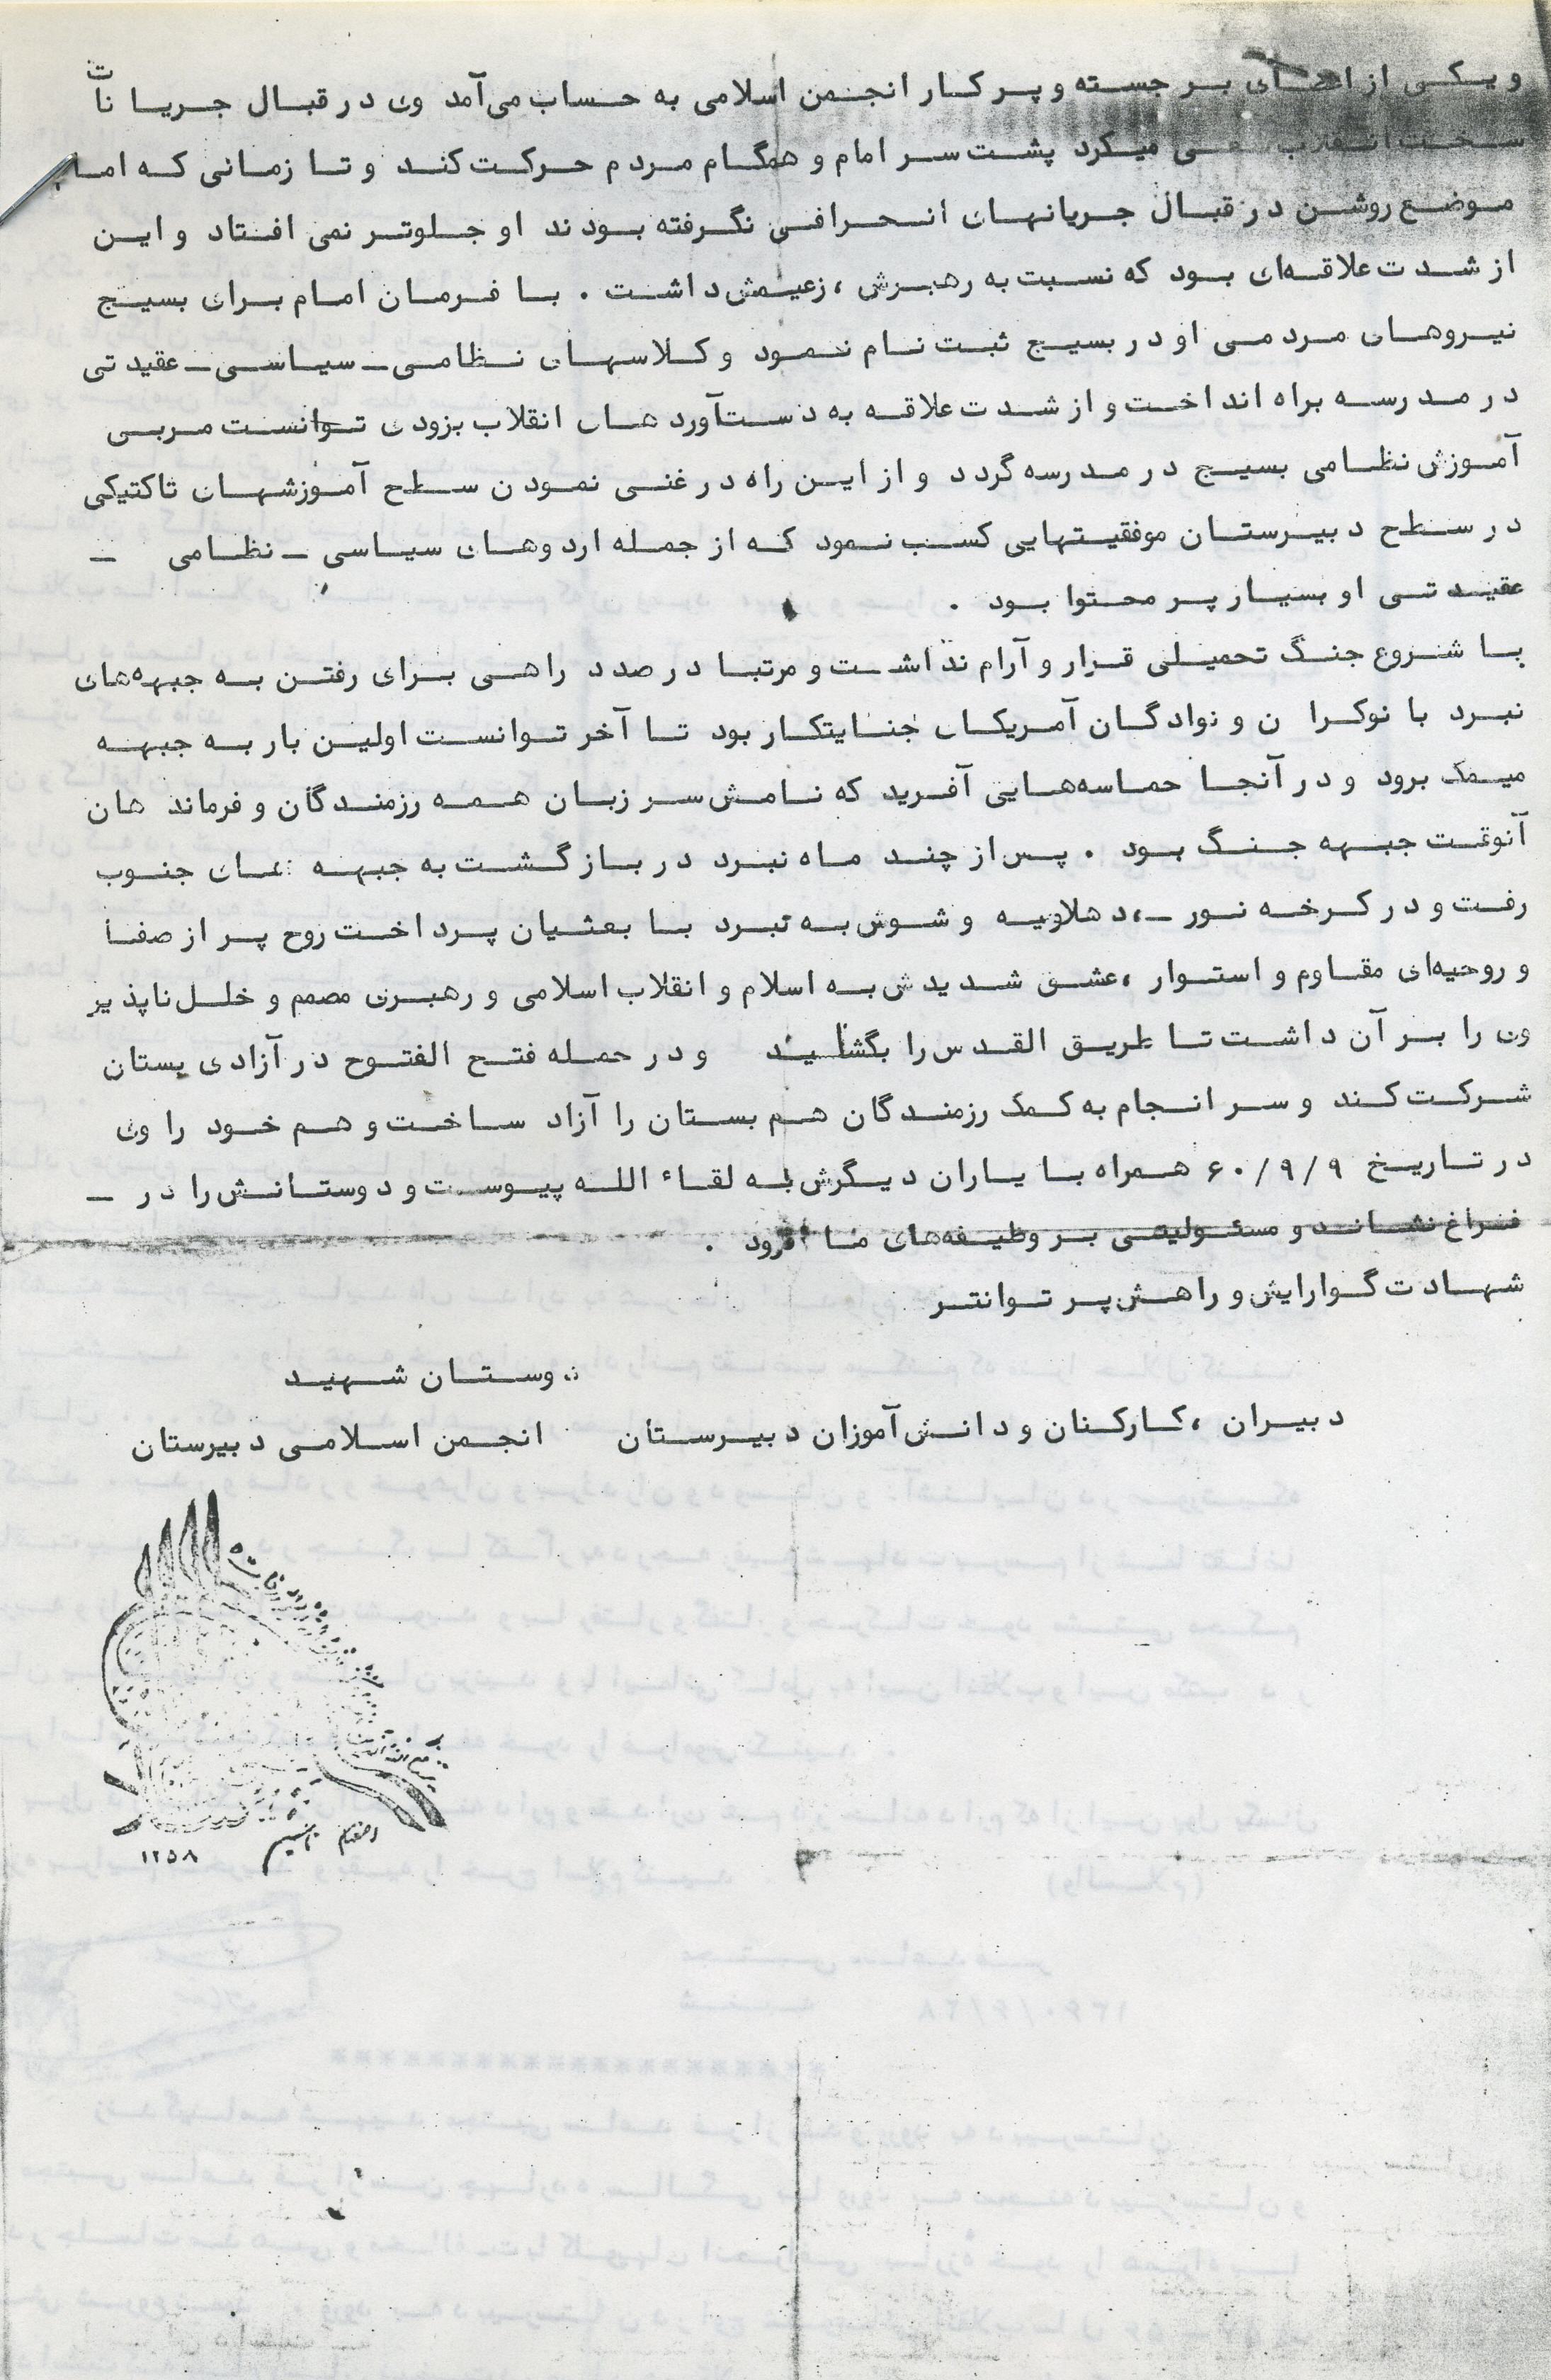 و یکی از اعضای برجسته و پرکار انجمن اسلامی به حساب می‌آمد وی در قبال جریانات
سخت انقلاب سعی میکرد پشت سر امام و همگام مردم حرکت کند و تا زمانی که امام
موضع روشن در قبال جریانهای انحرافی نگرفته بودند او جلوتر نمی افتاد و این
از شدت علاقه‌ای بود که نسبت به رهبرش ، زعیمش داشت . با فرمان امام برای بسیج
نیروهای مردمی او در بسیج ثبت نام نمود و کلاسهای نظامی - سیاسی - عقیدتی
در مدرسه براه انداخت و از شدت علاقه به دستآوردهای انقلاب بزودی توانست مربی
آموزش نظامی بسیج در مدرسه گردد و از این راه در غنی نمودن سطح آموزشهای تاکتیکی
در سطح دبیرستان موفقیتهایی کسب نمود که از جمله اردوهای سیاسی - نظامی -
عقیدتی او بسیار پر محتوا بود .
با شروع جنگ تحمیلی قرار و آرام نداشت و مرتبا در صدد راهی برای رفتن به جبهه‌های
نبرد با نوکران و نوادگان آمریکای جنایتکار بود تا آخر توانست اولین بار به جبهه
میمک برود و در آنجا حماسه‌هایی آفرید که نامش سر زبان همه رزمندگان و فرماندهان
آنوقت جبهه جنگ بود . پس از چند ماه نبرد در بازگشت به جبهه های جنوب
رفت و در کرخه نور - ، دهلاویه و شوش به نبرد با بعثیان پرداخت روح پر از صفا
و روحیه‌ای مقاوم و استوار ، عشق شدیدش به اسلام و انقلاب اسلامی و رهبری مصمم و خلل ناپذیر
وی را بر آن داشت تا طریق القدس را بگشاید و در حمله فتح الفتوح در آزادی بستان
شرکت کند و سر انجام به کمک رزمندگان هم بستان را آزاد ساخت و هم خود را وی
در تاریخ ۶۰/۹/۹ همراه با یاران دیگرش به لقاء الله پیوست و دوستانش را در -
فراغ نشاند و مسئولیتی بر وظیفه‌های ما افزود .
شهادت گوارایش و راهش پر توانتر
دوستان شهید
دبیران ، کارکنان و دانش آموزان دبیرستان انجمن اسلامی دبیرستان
۱۳۵۸